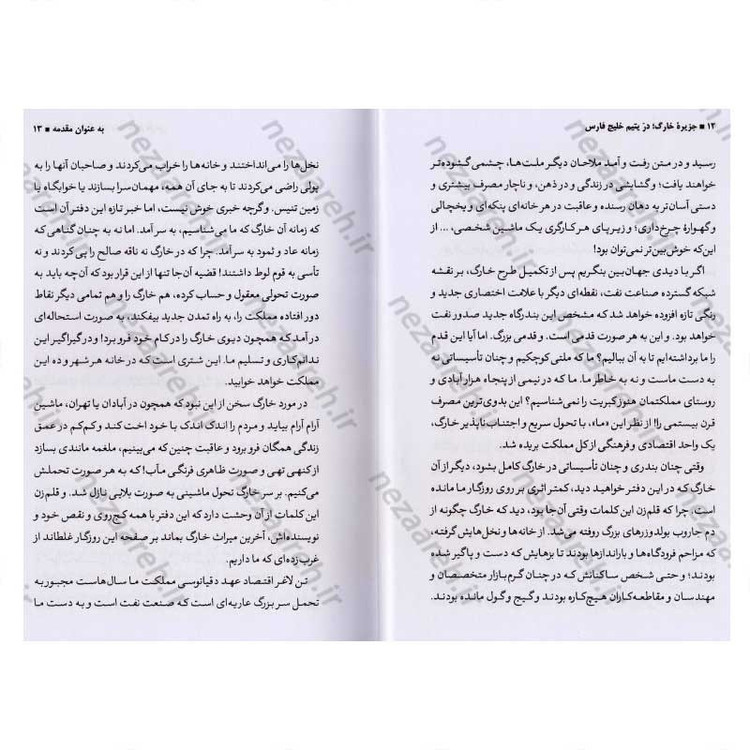 ۱۲ ■ جزیرهٔ خارگ؛ درّ یتیم خلیج فارس
رسید و در متن رفت و آمد ملاحان دیگر ملت‌ها، چشمی گشوده‌تر
خواهند یافت؛ و گشایشی در زندگی و در ذهن، و ناچار مصرف بیشتری و
دستی آسان‌تر به دهان رسنده و عاقبت در هر خانه‌ای پنکه‌ای و یخچالی
و گهوارهٔ چرخ‌داری؛ و زیر پای هر کارگری یک ماشین شخصی، ... از
این‌که خوش‌بین‌تر نمی‌توان بود!
اگر با دیدی جهان‌بین بنگریم پس از تکمیل طرح خارگ، بر نقشه
شبکه گسترده صناعت نفت، نقطه‌ای دیگر با علامت اختصاری جدید و
رنگی تازه افزوده خواهد شد که مشخص این بندرگاه جدید صدور نفت
خواهد بود. و این به هر صورت قدمی است. و قدمی بزرگ. اما آیا این قدم
را ما برداشته‌ایم تا به آن ببالیم؟ ما که ملتی کوچکیم و چنان تأسیساتی نه
به دست ماست و نه به خاطر ما. ما که در نیمی از پنجاه هزار آبادی و
روستای مملکتمان هنوز کبریت را نمی‌شناسیم؟ این بدوی‌ترین مصرف
قرن بیستمی را! از نظر این «ما»، با تحول سریع و اجتناب‌ناپذیر خارگ،
یک واحد اقتصادی و فرهنگی از کل مملکت بریده شد.
وقتی چنان بندری و چنان تأسیساتی در خارگ کامل بشود، دیگر از آن
خارگ که در این دفتر خواهید دید، کمتر اثری بر روی روزگار ما مانده
است. چرا که قلم‌زن این کلمات وقتی آن‌جا بود، دید که خارگ چگونه از
دم جاروب بولدوزرهای بزرگ روفته می‌شد. از خانه‌ها و نخل‌هایش گرفته،
که مزاحم فرودگاه‌ها و باراندازها بودند تا بزهایش که دست و پاگیر شده
بودند؛ و حتی شخص ساکنانش که در چنان گرم‌بازار متخصصان و
مهندسان و مقاطعه‌کاران هیچ‌کاره بودند و گیج و گول مانده بودند.
به عنوان مقدمه ■ ۱۳
نخل‌ها را می‌انداختند و خانه‌ها را خراب می‌کردند و صاحبان آنها را به
پولی راضی می‌کردند تا به جای آن همه، مهمان‌سرا بسازند یا خوابگاه یا
زمین تنیس. و گرچه خبری خوش نیست، اما خبر تازه این دفتر آن است
که زمانه آن خارگ که ما می‌شناسیم، به سر آمد. اما نه به چنان گناهی که
زمانه عاد و ثمود به سر آمد. چرا که در خارگ نه ناقه صالح را پی کردند و نه
تأسی به قوم لوط داشتند! قضیه آن‌جا تنها از این قرار بود که آن‌چه باید به
صورت تحولی معقول و حساب کرده، هم خارگ را و هم تمامی دیگر نقاط
دور افتاده مملکت را، به راه تمدن جدید بیفکند، به صورت استحاله‌ای
درآمد که همچون دیوی خارگ را در کام خود فرو برد! و در گیراگیر این
ندانم‌کاری و تسلیم ما. این شتری است که در خانه هر شهر و ده این
مملکت خواهد خوابید.
در مورد خارگ سخن از این نبود که همچون در آبادان یا تهران، ماشین
آرام آرام بیاید و مردم را اندک اندک با خود اخت کند و کم‌کم در عمق
زندگی همگان فرو برود و عاقبت چنین که می‌بینیم، ملغمه مانندی بسازد
از کنهی تهی و صورت ظاهری فرنگی مآب! که به هر صورت تحملش
می‌کنیم. بر سر خارگ تحول ماشینی به صورت بلایی نازل شد. و قلم‌زن
این کلمات از آن وحشت دارد که این دفتر با همه کج‌روی و نقص خود و
نویسنده‌اش، آخرین میراث خارگ بماند بر صفحه این روزگار غلط‌انداز
غرب‌زده‌ای که ما داریم.
تن لاغر اقتصاد عهد دقیانوسی مملکت ما سال‌هاست مجبور به
تحمل سر بزرگ عاریه‌ای است که صنعت نفت است و به دست ما
nezaareh.ir